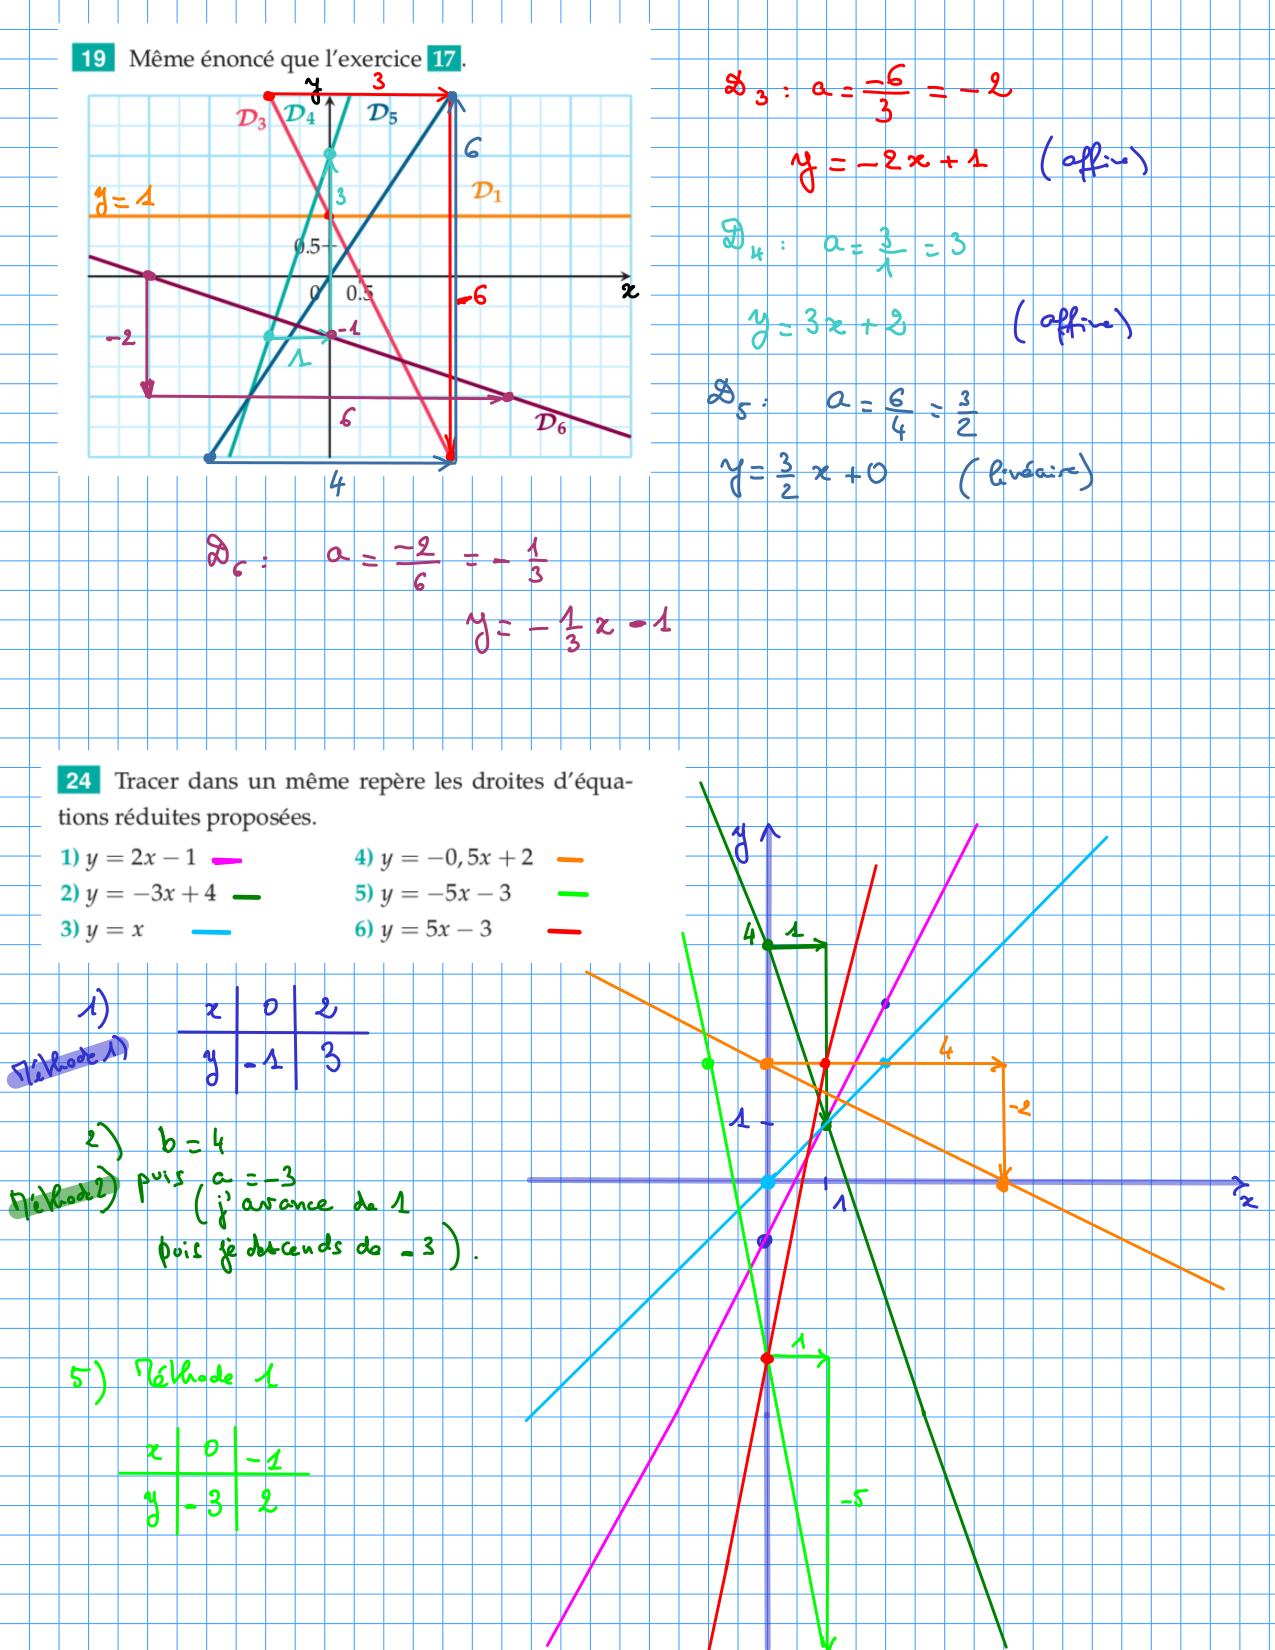 19 Même énoncé que l'exercice 17.
y 3
D₃ D₄ D₅
6
3 D₁
y = 1
0.5
0 0.5 x
-6
-1
-2
1
6
D₆
4
D₃ : a = -6/3 = -2
y = -2x + 1 (affine)
D₄ : a = 3/1 = 3
y = 3x + 2 (affine)
D₅ : a = 6/4 = 3/2
y = 3/2 x + 0 (linéaire)
D₆ : a = -2/6 = - 1/3
y = - 1/3 x - 1
24 Tracer dans un même repère les droites d'équa-
tions réduites proposées.
1) y = 2x − 1
2) y = −3x + 4
3) y = x
4) y = −0,5x + 2
5) y = −5x − 3
6) y = 5x − 3
1)
Méthode 1)
x 0 2
y -1 3
2) b = 4
Méthode 2) puis a = -3
( j'avance de 1
puis je descends de -3 ).
5) Méthode 1
x 0 -1
y -3 2
y
4 1
4
-2
1
1 x
1
-5